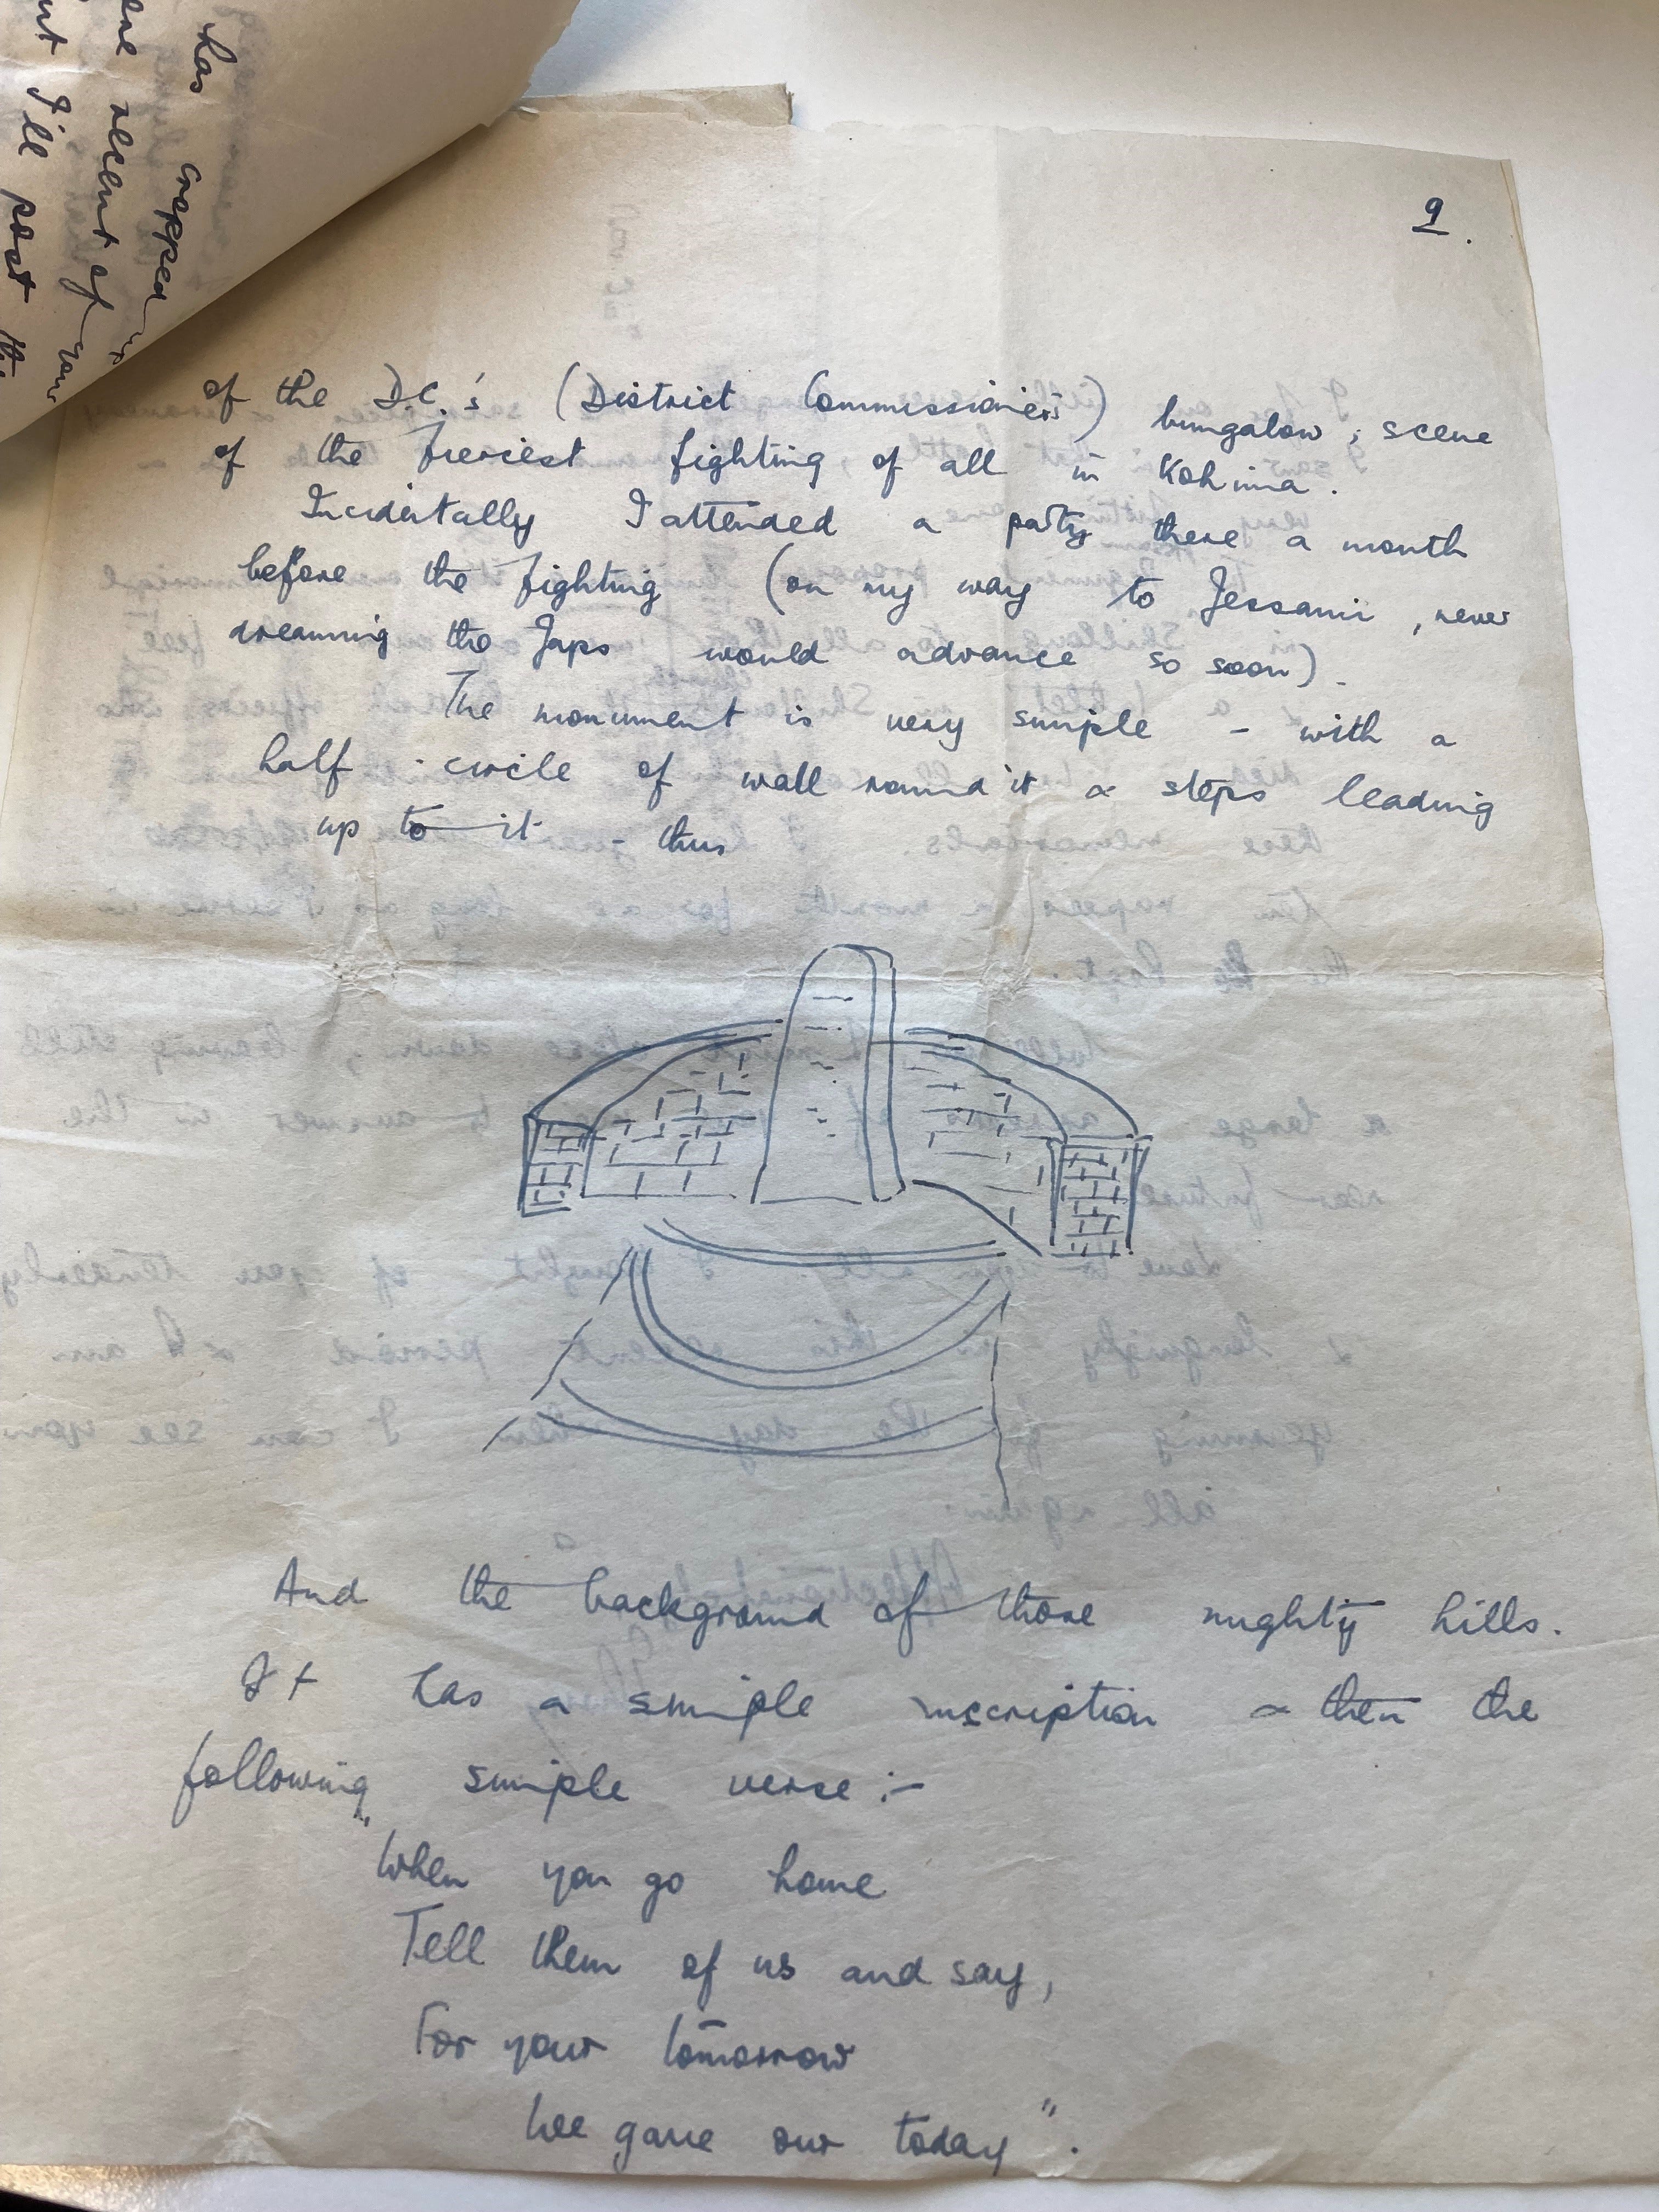 has cropped
recent of your
I'll post
9.
of the D.C.'s (District Commissioner's) bungalow, scene
of the fierciest fighting of all in Kohima.
Incidentally I attended a party there a month
before the fighting (on my way to Jessami, never
dreaming the Japs would advance so soon).
The monument is very simple - with a
half-circle of wall round it & steps leading
up to it - thus
And the background of those mighty hills.
It has a simple inscription & then the
following simple verse :-
"When you go home
Tell them of us and say,
For your tomorrow
We gave our today".